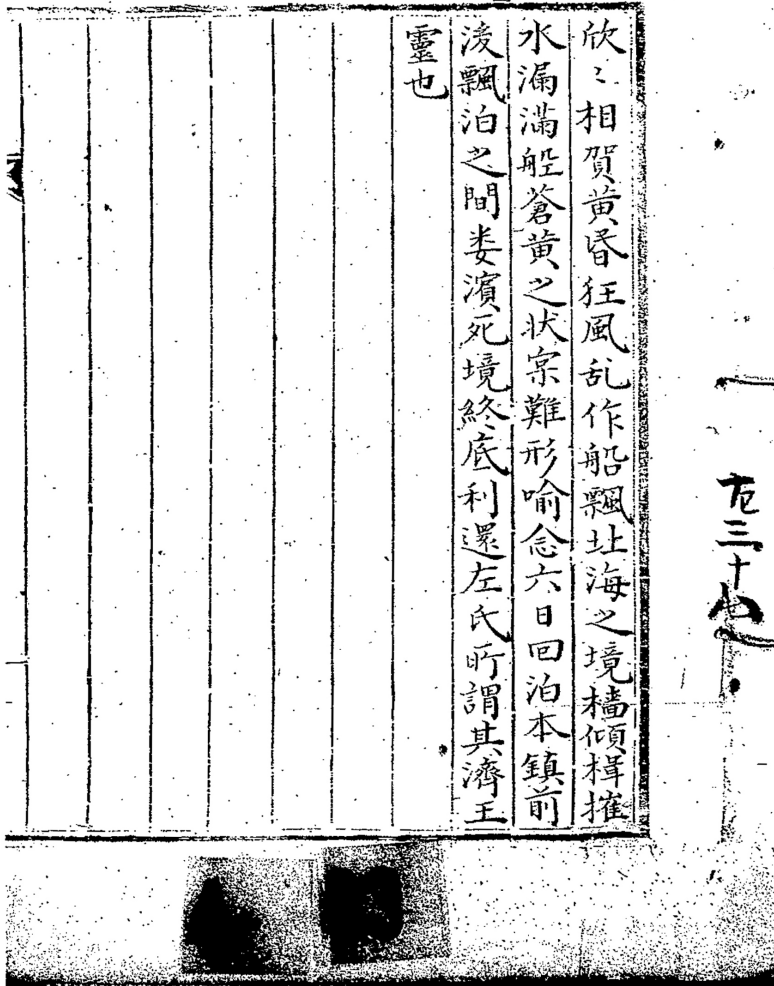 三十
欣〻相賀黄昬狂風乱作船飄北海之境檣傾楫摧
水漏滿船蒼黄之状宲難形喻念六日回泊本鎮前
後飄泊之間娄濱死境終底利還左氏所謂其濟王
靈也